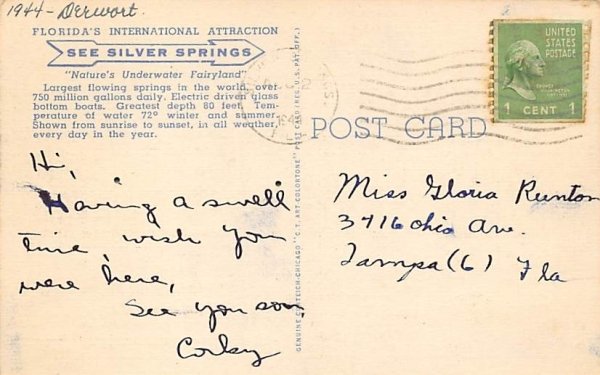 1944 -
FLORIDA'S INTERNATIONAL ATTRACTION
SEE SILVER SPRINGS
"Nature's Underwater Fairyland"
Largest flowing springs in the world, over
750 million gallons daily. Electric driven glass
bottom boats. Greatest depth 80 feet. Tem-
perature of water 72° winter and summer.
Shown from sunrise to sunset, in all weather,
every day in the year.
Hi,
Having a swell
time, wish you
were here,
See you soon,
Corky
GENUINE CURTEICH-CHICAGO "C.T. ART-COLORTONE" POST CARD (REG. U.S. PAT. OFF.)
UNITED
STATES
POSTAGE
1 CENT 1
POST CARD
Miss Gloria Runton
3716 Ohio Ave.
Tampa (6) Fla